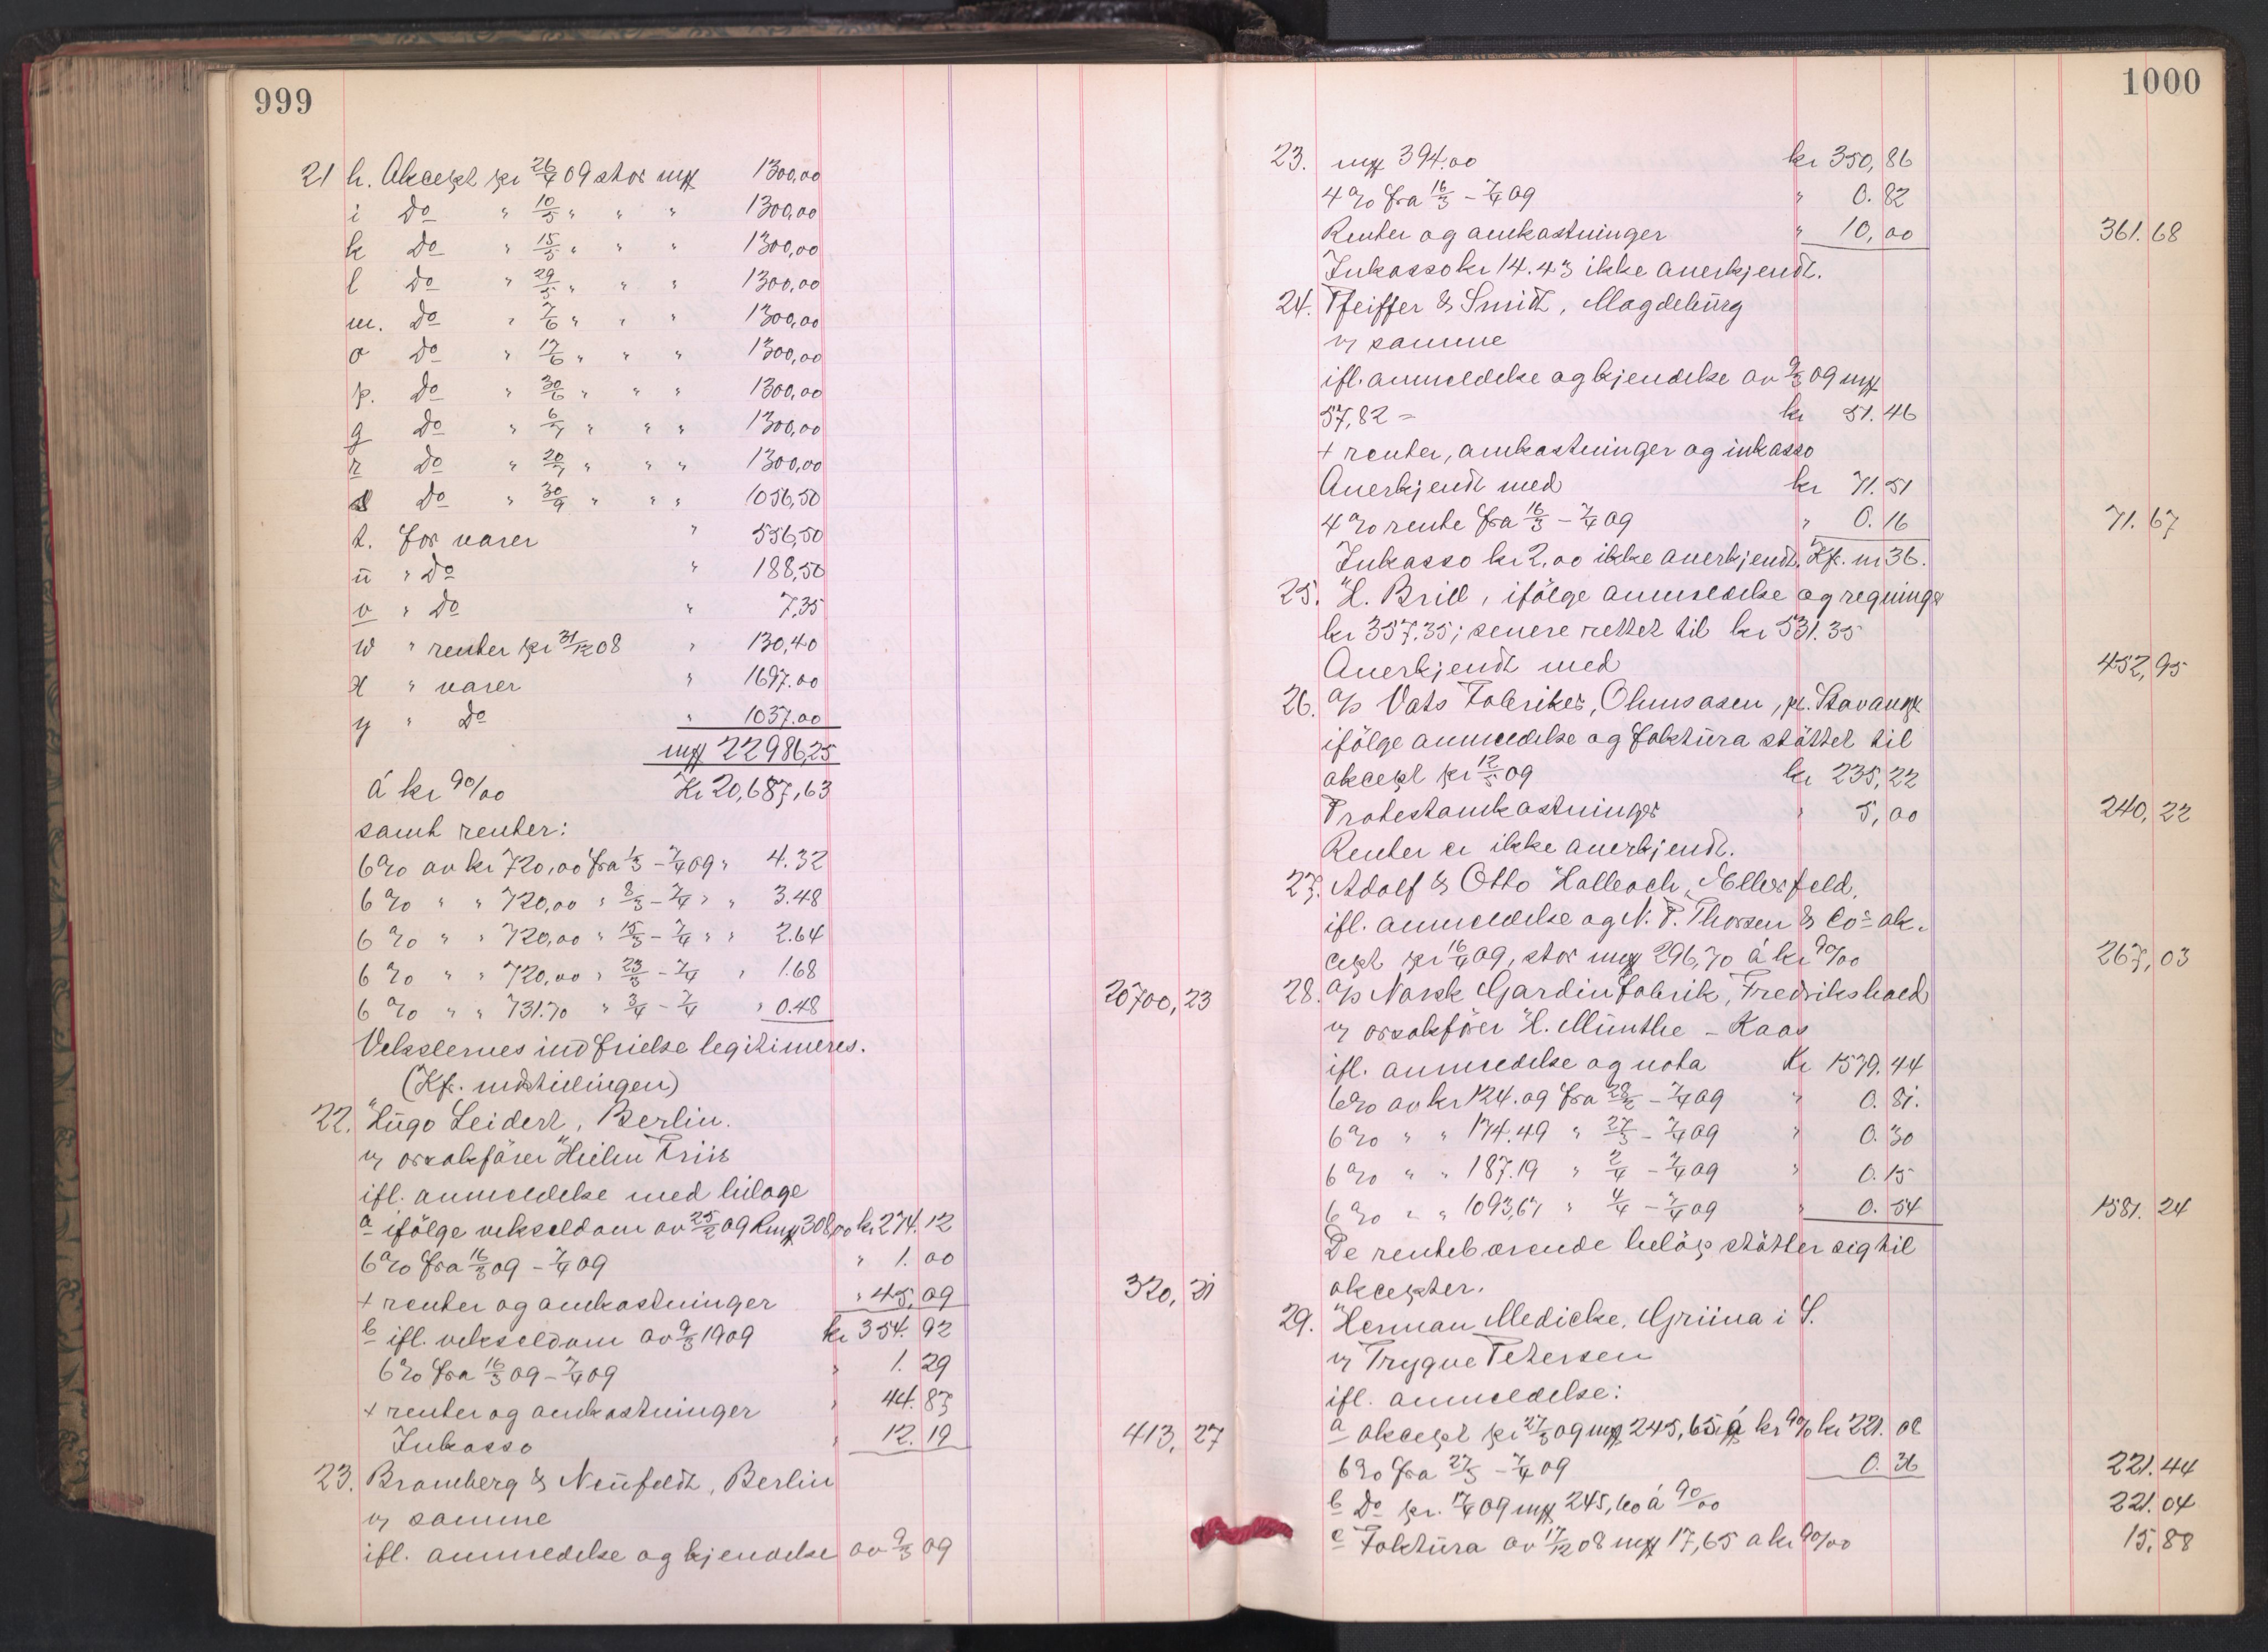 999
21 h. Akcept pr 26/4 09 stor mk 1300,00
i Do " 10/5 " " " 1300,00
k Do " 15/5 " " " 1300,00
l Do " 29/5 " " " 1300,00
m. Do " 7/6 " " " 1300,00
o Do " 17/6 " " " 1300,00
p. Do " 30/6 " " " 1300,00
q Do " 6/7 " " " 1300,00
r Do " 20/7 " " " 1300,00
s Do " 30/9 " " " 1056,50
t. for varer " 556,50
u " Do " 188,50
v " Do " 7,35
w " renter pr 31/12 08 " 130,40
x " varer " 1697.00
y " Do " 1037.00
mk 22986,25
á kr 90/00 Kr 20,687,63
samt renter:
6% av kr 720,00 fra 1/3 - 7/4 09 " 4.32
6% " " 720,00 " 8/3 - 7/4 " " 3.48
6% " " 720,00 " 15/3 - 7/4 " " 2.64
6% " " 720,00 " 23/3 - 7/4 " 1.68
6% " " 731.70 " 3/4 - 7/4 " 0.48 20700,23
Vekslernes indfrielse legitimeres.
(Kfr. indstillingen)
22. Hugo Leidert, Berlin.
v/ orsakfører Heilm Friis
ifl. anmeldelse med bilage
a ifölge vekseldom av 25/2 09 Rmk 308,00 kr 274.12
6% fra 16/3 09 - 7/4 09 " 1.00
+ renter og omkostninger " 45,09 320,21
b ifl. vekseldom av 9/3 1909 kr 354.92
6% fra 16/3 09 - 7/4 09 " 1.29
+ renter og omkostninger " 44.87
Inkasso " 12.19 413,27
23. Bromberg & Neufeldt, Berlin
v/ samme
ifl. anmeldelse og kjendelse av 9/3 09
1000
23. mk 394.00 kr 350,86
4% fra 16/3 - 7/4 09 " 0.82
Renter og omkostninger " 10,00 361.68
Inkasso kr 14.43 ikke anerkjendt.
24. Pfeiffer & Smidt, Magdeburg
v/ samme
ifl. anmeldelse og kjendelse av 9/3 09 mk
57,82 = kr 51.46
+ renter, omkostninger og inkasso
Anerkjendt med kr 71.51
4% rente fra 16/3 - 7/4 09 " 0.16 71.67
Inkasso kr 2,00 ikke anerkjendt. Kfr. nr 36.
25. H. Brill, ifölge anmeldelse og regninge
kr 357.35; senere rettet til kr 531.35
Anerkjendt med 452,95
26. a/s Vats Fabriker, Ølensåsen, pr. Stavanger
ifölge anmeldelse og faktura stöttet til
akcept pr 12/5 09 kr 235,22
Protestomkostninger " 5,00 240,22
Renter er ikke anerkjendt.
27. Adolf & Otto Hallbach, Elberfeld,
ifl. anmeldelse og N. P. Thorsen & Co's ak-
cept pr 16/4 09, stor mk 296,70 á kr 90/00 267,03
28. a/s Norsk Gardinfabrik, Fredrikshald
v/ orsakfører H. Munthe-Kaas
ifl. anmeldelse og nota Kr 1579.44
6% av kr 124.09 fra 28/2 - 7/4 09 " 0.81.
6% " " 174.49 " 27/3 - 7/4 09 " 0.30
6% " " 187.19 " 2/4 - 7/4 09 " 0.15
6% " " 1093,67 " 4/4 - 7/4 09 " 0.54 1581.24
De rentebærende belöp stötter sig til
akcepter.
29. Herman Medicke, Grüna i S.
v/ Trygve Petersen
ifl. anmeldelse:
a akcept pr 27/3 09 mk 245,65 á kr 90 kr 221.08
6% fra 27/3 - 7/4 09 0.36 221.44
b Do pr. 17/4 09 mk 245,60 á 90/00 221.04
c Faktura av 17/12 08 mk 17,65 a kr 90/00 15,88